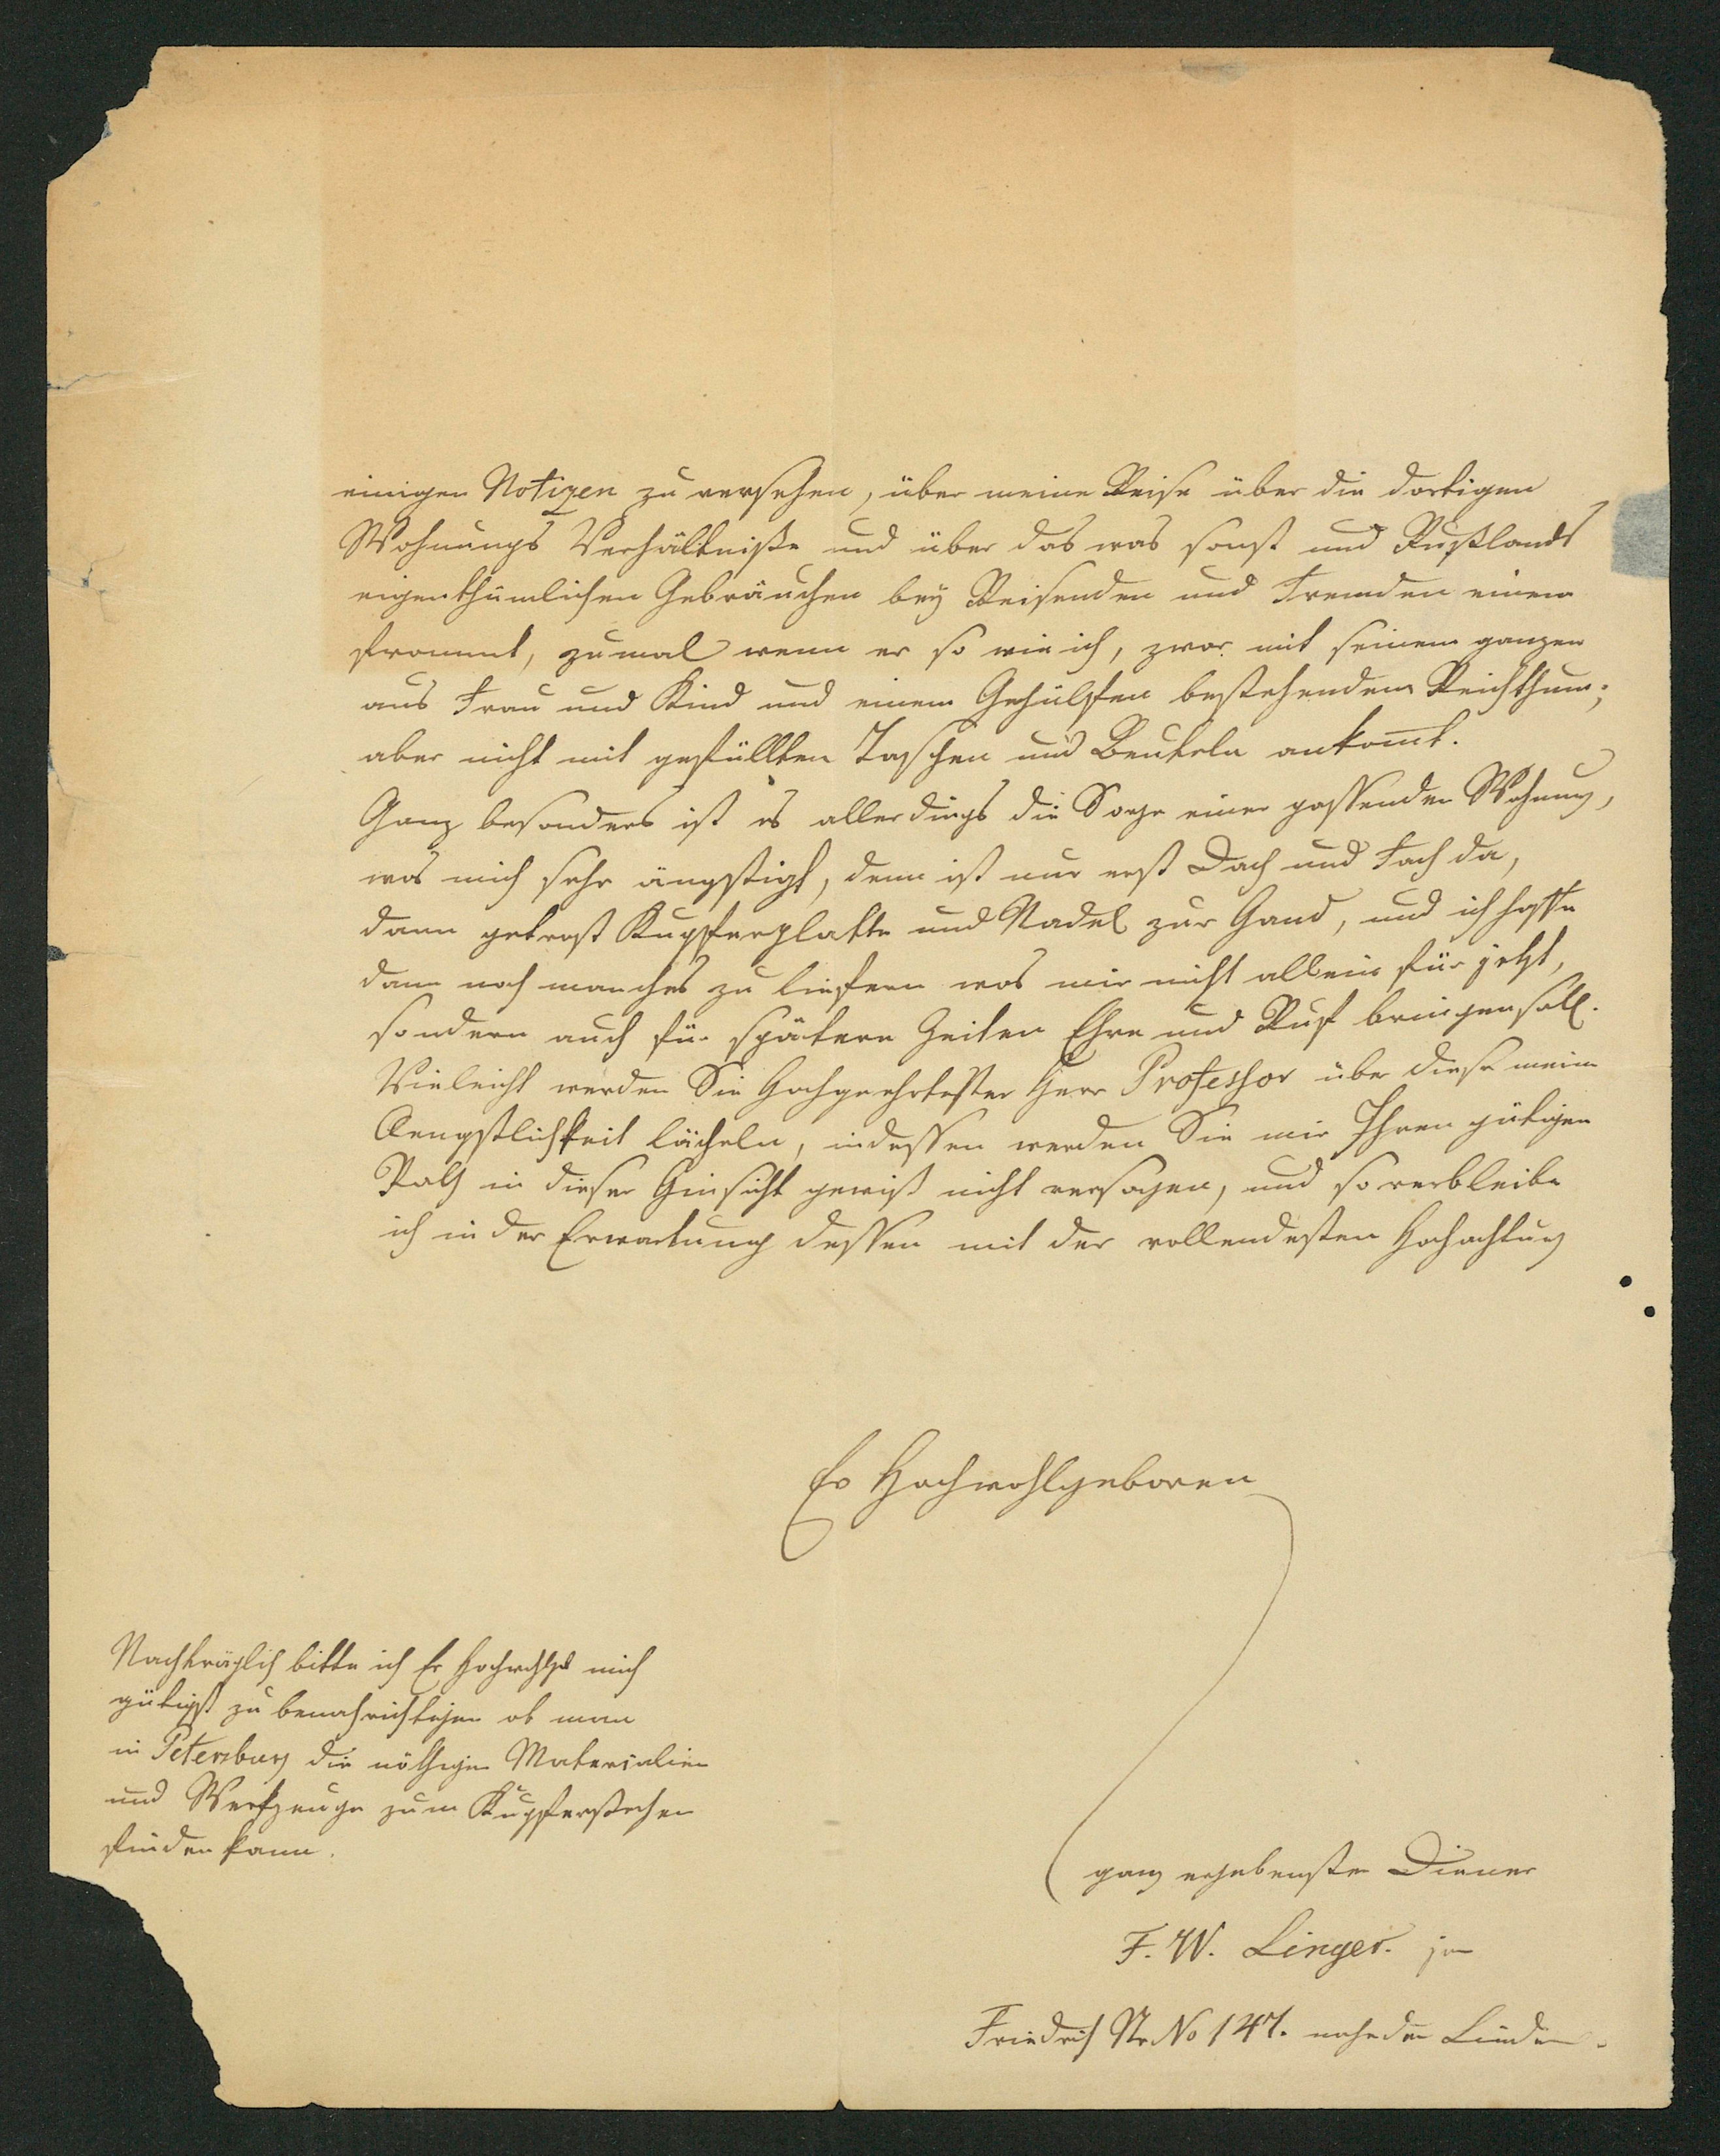 einigen Notizen zu versehen, über meine Reise über die dortigen
Wohnungs Verhältniße und über das was sonst und Rußlands
eigenthümlichen Gebräuchen bey Reisenden und Fremden einem
frommt, zumal wenn er so wie ich, zwar mit seinem ganzen
aus Frau und Kind und einem Gehülfen bestehendem Reichthum;
aber nicht mit gefüllten Taschen und Beuteln ankom̄t.
Ganz besonders ist es allerdings die Sorge einer passenden Wohnung,
was mich sehr ängstigt, denn ist nur erst Dach und Fach da,
dann getrost Kupferplatte und Nadel zur Hand, und ich hoffe
dann noch manches zu liefern was mir nicht allein für jetzt,
sondern auch für spätere Zeiten Ehre und Ruf bringen soll.
Vieleicht werden Sie Hochgeehrtester Herr Professor über diese meine
Aengstlichkeit lächeln, indessen werden Sie mir Ihren gütigen
Rath in dieser Hinsicht gewiß nicht versagen, und so verbleibe
ich in der Erwartung dessen mit der vollendesten Hochachtung
Ew Hochwohlgeboren
Nachträglich bitte ich Ew Hochwohlgb mich
gütigst zu benachrichtigen ob man
in Petersburg die nöthigen Materialien
und Werkzeuge zum Kupferstechen
finden kann.
ganz ergebenster Diener
F. W. Linger. jun
Friedrich Str No 147. nahe den Linden.